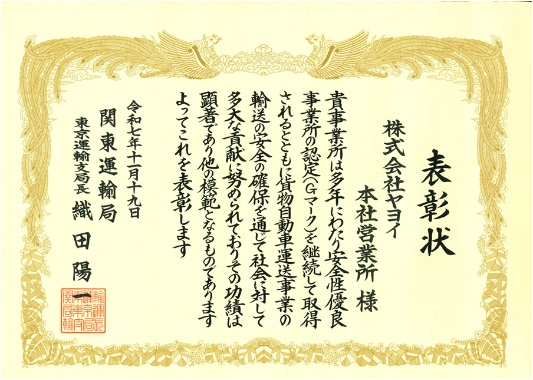 表彰状
株式会社ヤヨイ
本社営業所 様
貴事業所は多年にわたり安全性優良
事業所の認定(Gマーク)を継続して取得
されるとともに貨物自動車運送事業の
輸送の安全の確保を通じて社会に対して
多大な貢献に努められておりその功績は
顕著であり他の模範となるものであります
よってこれを表彰します
令和七年十一月十九日
関東運輸局
東京運輸支局長 織田陽一